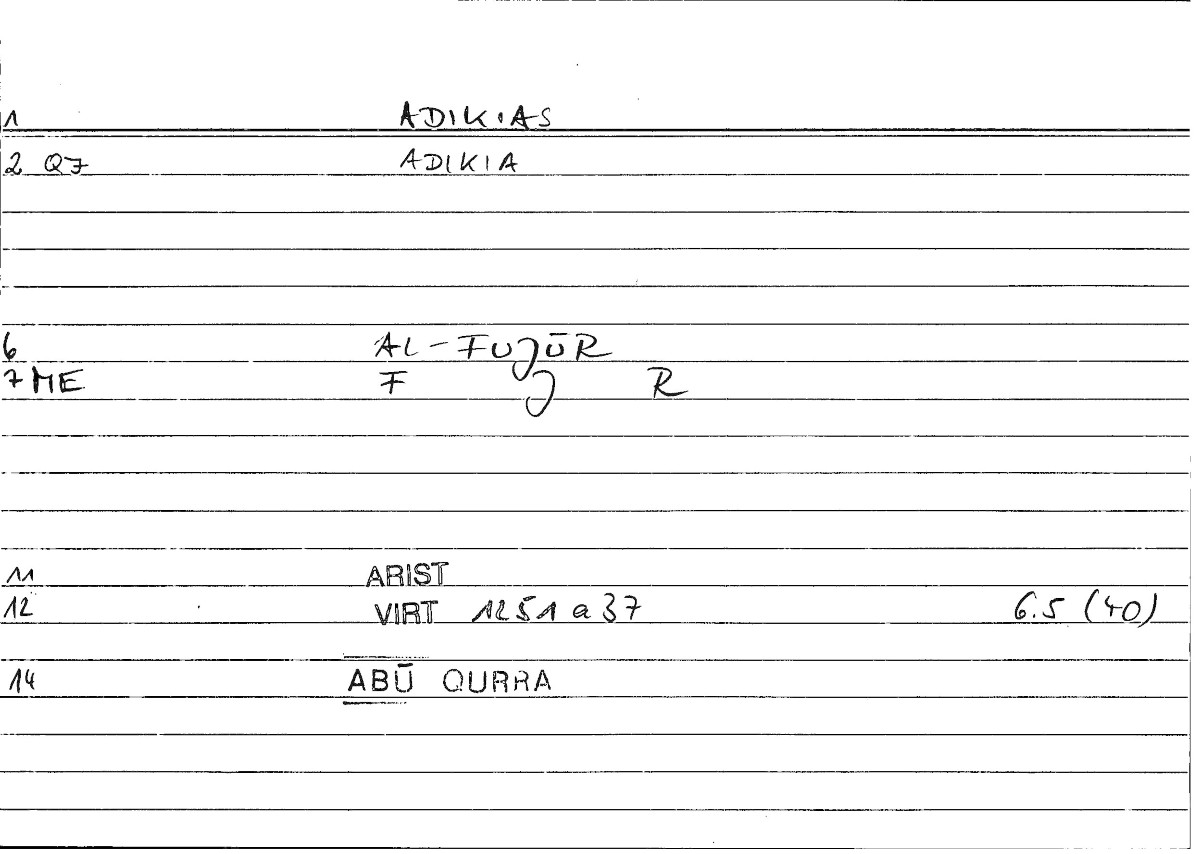 1 ADIKIAS
2 Q7 ADIKIA
6 AL-FUJŪR
7 ME F J R
11 ARIST
12 VIRT 1251 a 37 6.5 (40)
14 ABŪ QURRA